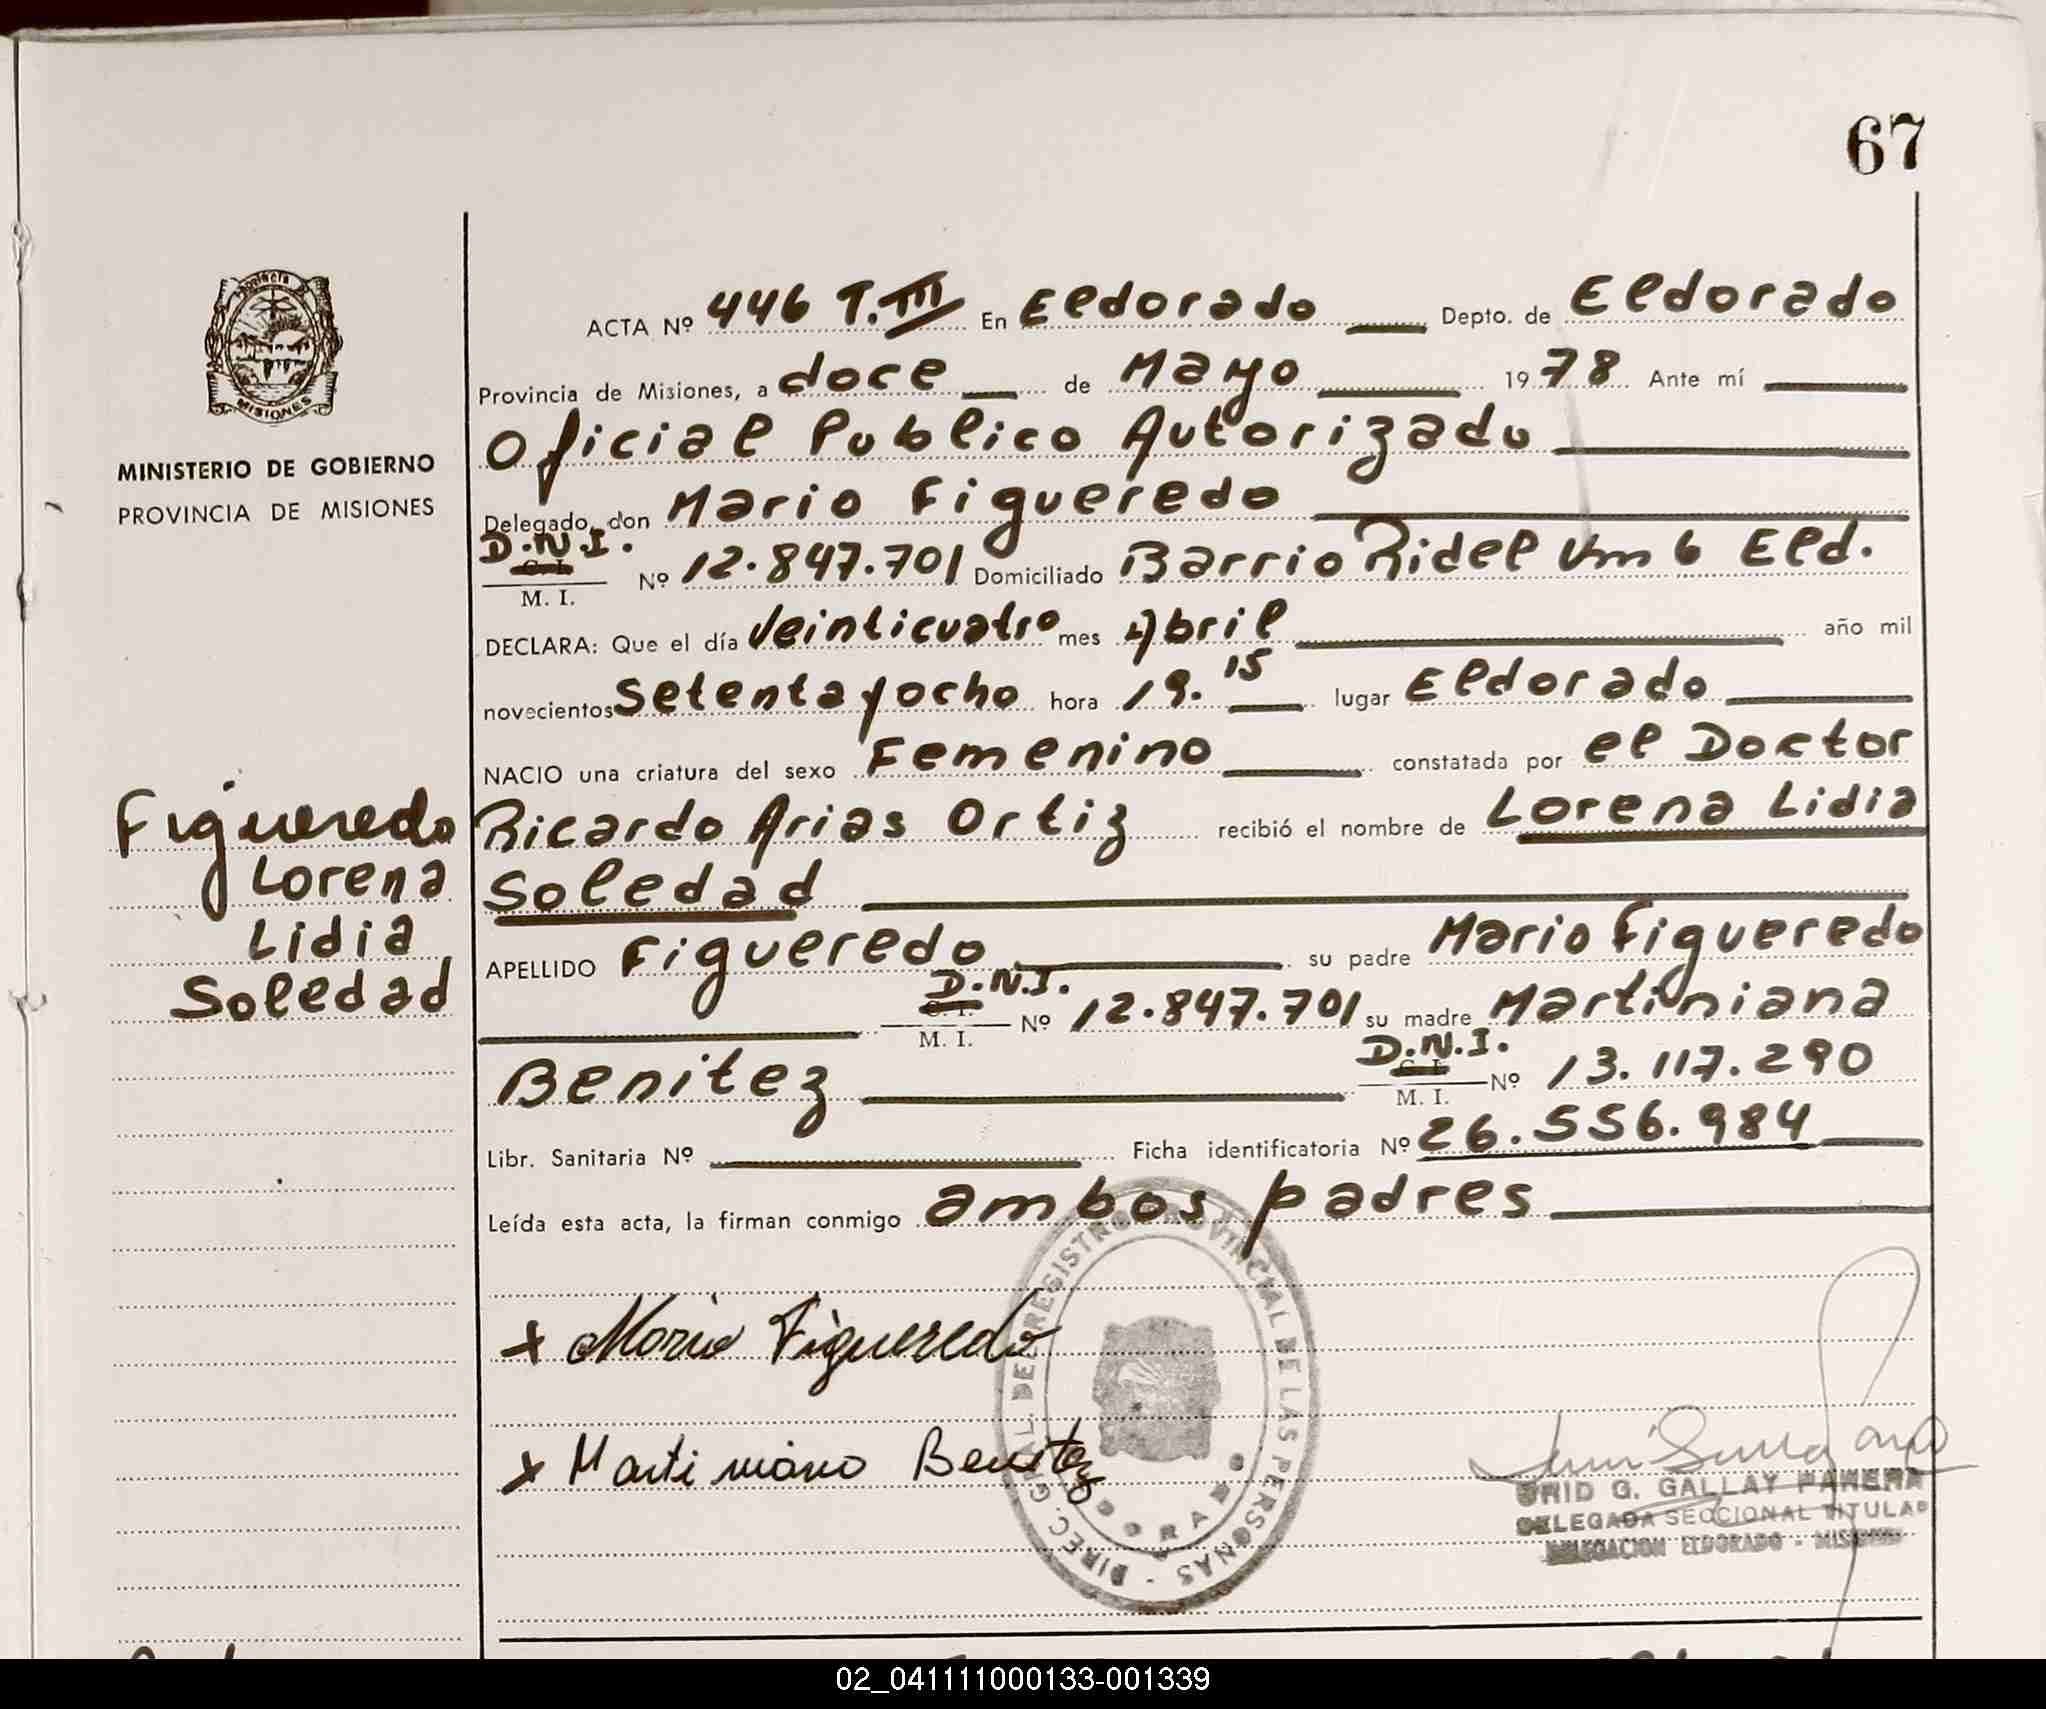 67
Provincia
MISIONES
MINISTERIO DE GOBIERNO
PROVINCIA DE MISIONES
Figueredo
Lorena
Lidia
Soledad
ACTA Nº 446 T.III En Eldorado Depto. de Eldorado
Provincia de Misiones, a doce de Mayo 1978 Ante mí
Oficial Publico Autorizado
Delegado, don Mario Figueredo
D.N.I. C. I. M. I. Nº 12.847.701 Domiciliado Barrio Ridel Km 6 Eld.
DECLARA: Que el día veinticuatro mes Abril año mil
novecientos Setenta y ocho hora 19.15 lugar Eldorado
NACIO una criatura del sexo Femenino constatada por el Doctor
Ricardo Arias Ortiz recibió el nombre de Lorena Lidia
Soledad
APELLIDO Figueredo su padre Mario Figueredo
D.N.I. C. I. M. I. Nº 12.847.701 su madre Martiniana
Benitez D.N.I. C. I. M. I. Nº 13.117.290
Libr. Sanitaria Nº Ficha identificatoria Nº 26.556.984
Leída esta acta, la firman conmigo ambos padres
x Mario Figueredo
x Martiniana Benitez
DIREC. GRAL. DEL REGISTRO PROVINCIAL DE LAS PERSONAS
G. GALLAY
DELEGADA SECCIONAL TITULAR
DELEGACION ELDORADO - MISIONES
02_041111000133-001339